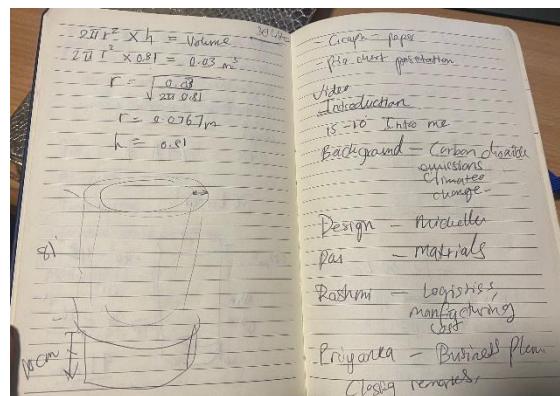 2πr² × h = Volume
2πr² × 0.81 = 0.03 m³
r = √ 0.03 / 2π 0.81
r = 0.0767m
h = 0.81
81
10cm
- Graph - paper
- Pie chart presentation
Video
Introduction
15-10 Intro me
Background - Carbon dioxide
emissions
climate
change -
Design - Michelle
- Materials
Rashmi - Logistics,
manfacturing
cost
Priyanka - Business Plan
Closing remarks,